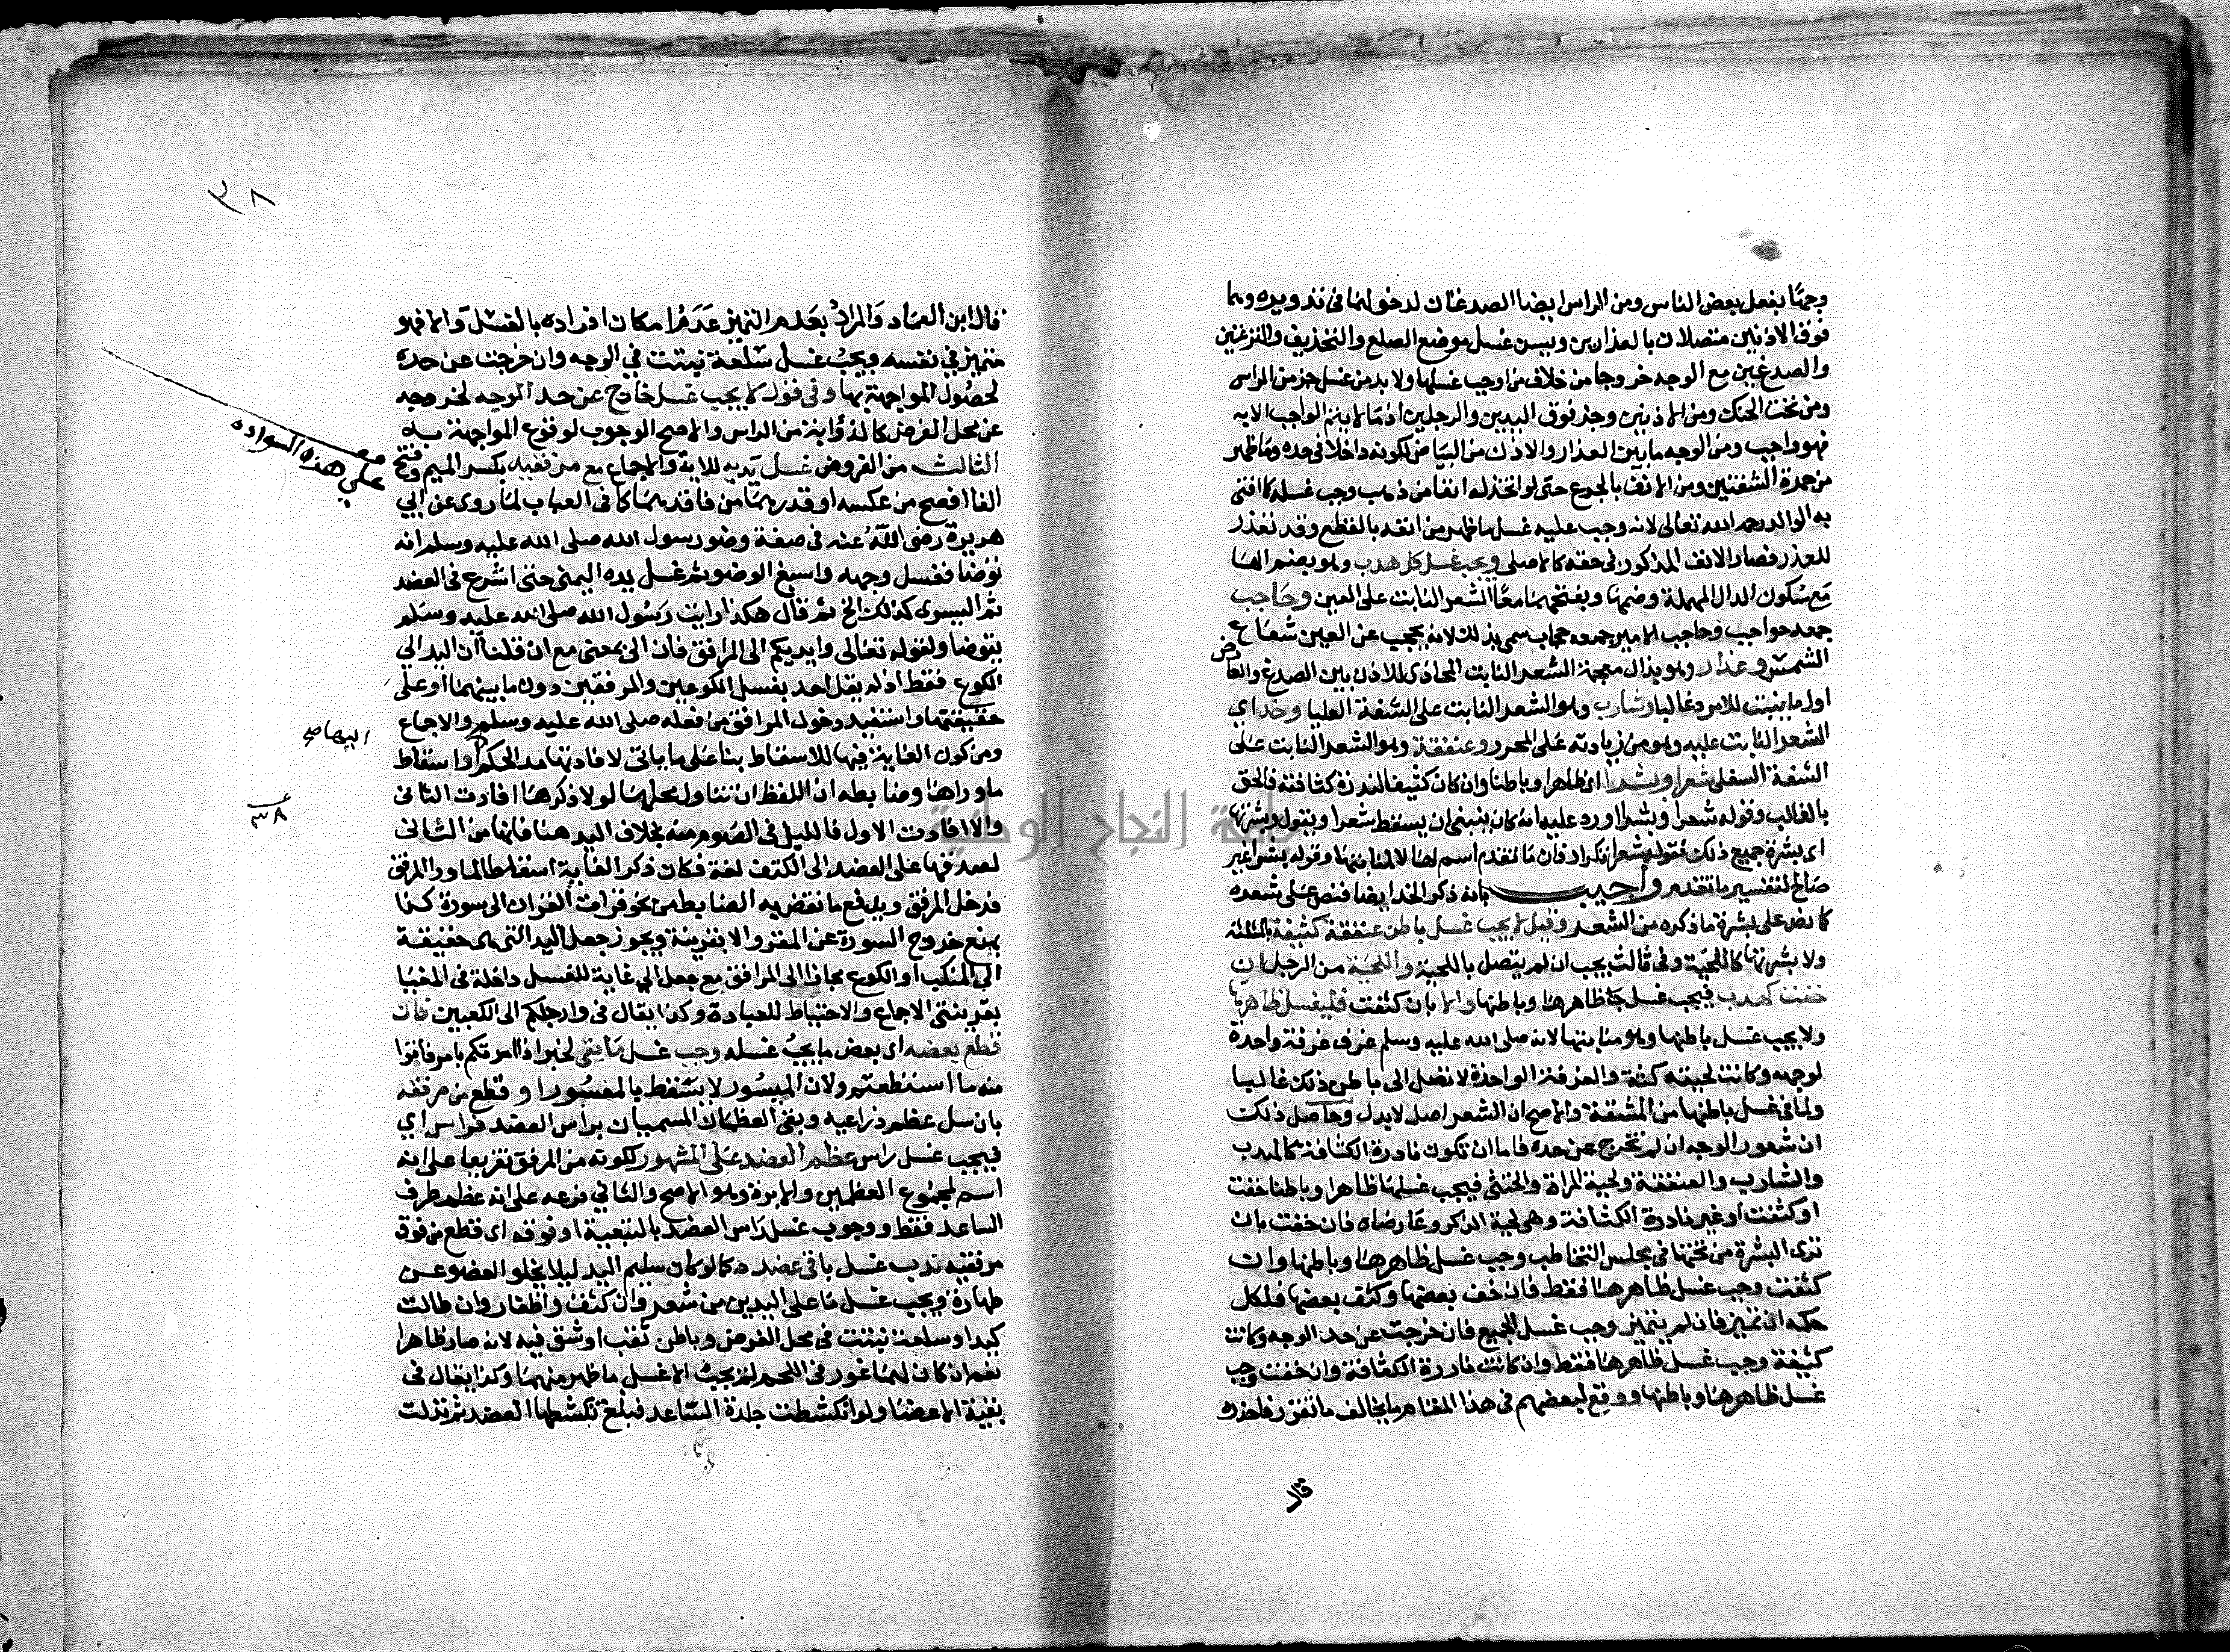 وجهًا بفعل بعض الناس ومن الراس ايضا الصدغان لدخولهما في تدويره وهما
فوق الاذنين متصلان بالعذارين ويسن غسل موضع الصلع والتحذيف والنزعتين
والصدغين مع الوجه خروجا من خلاف من اوجب غسلها ولابد من غسل جز من الراس
ومن تحت الحنك ومن الاذنين وجز فوق اليدين والرجلين اذ ما لا يتم الواجب الا به
فهو واجب ومن الوجه ما بين العذار والاذن من البياض لكونه داخلا في حده وما ظهر
من حمرة الشفتين ومن الانف بالجدع حتى لو اتخذ له انفا من ذهب وجب غسله كما افتى
به الوالد رحمه الله تعالى لانه وجب عليه غسل ما ظهر من انفه بالقطع وقد تعذر
للعذر فصار الانف المذكور في حقه كالاصلي ويجب غسل كل هدب وهو بضم الها
مع سكون الدال المهملة وضمها وبفتحهما معا الشعر النابت على العين وحاجب
جمعه حواجب وحاجب الامير جمعه حجاب سمي بذلك لانه يحجب عن العين شعاع
الشمس وعذار وهو بذال معجمة الشعر النابت المحاذي للاذن بين الصدغ والعارض
اول ما ينبت للامرد غالبا وشارب وهو الشعر النابت على الشفة العليا وخد اي
الشعر النابت عليه وهو من زيادته على المحرر وعنفقة وهو الشعر النابت على
الشفة السفلى شعرا وبشرا اي ظاهرا وباطنا وان كان كثيفا لندرة كثافته فالحق
بالغالب وقوله شعرا وبشرا اورد عليه انه كان ينبغي ان يسقط شعرا ويقول وبشرتها
اي بشرة جميع ذلك فقوله شعرا تكرار فان ما تقدم اسم لها لا لمنابتها وقوله بشرا غير
صالح لتفسير ما تقدم واجيب بانه ذكر الخد ايضا فنص على شعره
كما نص على بشرة ما ذكره من الشعر وقيل لا يجب غسل باطن عنفقة كثيفة بالمثلثة
ولا بشرتها كاللحية وفي ثالث يجب ان لم يتصل باللحية واللحية من الرجل ان
خفت كهدب فيجب غسل ظاهرها وباطنها والا بان كثفت فليغسل ظاهرها
ولا يجب غسل باطنها وهو منابتها لانه صلى الله عليه وسلم غرف غرفة واحدة
لوجهه وكانت لحيته كثة والغرفة الواحدة لا تصل الى باطن ذلك غالبا
ولما في غسل باطنها من المشقة والاصح ان الشعر اصل لا بدل وحاصل ذلك
ان شعور الوجه ان لم تخرج عن حده فاما ان تكون نادرة الكثافة كالهدب
والشارب والعنفقة ولحية المراة والخنثى فيجب غسلها ظاهرا وباطنا خفت
او كثفت او غير نادرة الكثافة وهي لحية الذكر وعارضاه فان خفت بان
ترى البشرة من تحتها في مجلس التخاطب وجب غسل ظاهرها وباطنها وان
كثفت وجب غسل ظاهرها فقط فان خف بعضها وكثف بعضها فلكل
حكمه ان تميز فان لم يتميز وجب غسل الجميع فان خرجت عن حد الوجه وكانت
كثيفة وجب غسل ظاهرها فقط وان كانت نادرة الكثافة وان خفت وجب
غسل ظاهرها وباطنها ووقع لبعضهم في هذا المقام ما يخالف ما تقرر فاحذره
قال
٣٨
قال ابن العماد والمراد بعدم التميز عدم امكان افراده بالغسل والا فهو
متميز في نفسه ويجب غسل سلعة نبتت في الوجه وان خرجت عن حده
لحصول المواجهة بها وفي قول لا يجب غسل خارج عن حد الوجه لخروجه
عن محل الفرض كالذؤابة من الراس والاصح الوجوب لوقوع المواجهة به
الثالث من الفروض غسل يديه للاية والاجماع مع مرفقيه بكسر الميم وفتح
الفا افصح من عكسه او قدرهما من فاقدهما كما في العباب لما روى عن ابي
هريرة رضى الله عنه في صفة وضو رسول الله صلى الله عليه وسلم انه
توضا فغسل وجهه واسبغ الوضو ثم غسل يده اليمنى حتى اشرع في العضد
ثم اليسرى كذلك الخ ثم قال هكذا رايت رسول الله صلى الله عليه وسلم
يتوضا ولقوله تعالى وايديكم الى المرافق فان الى بمعنى مع ان قلنا ان اليد الى
الكوع فقط اذ لم يقل احد بغسل الكوعين والمرفقين دون ما بينهما او على
حقيقتها واستفيد دخول المرافق من فعله صلى الله عليه وسلم والاجماع
ومن كون الغاية فيها للاسقاط بنا على ما ياتي لا فادتها مد الحكم واسقاط
ما وراها وضابطه ان اللفظ ان تناول محلها لولا ذكرها افادت الثاني
والا افادت الاول فالليل في الصوم منه بخلاف اليد هنا فانها من الثاني
لصدقها على العضد الى الكتف لغة فكان ذكر الغاية اسقاطا لما ورا المرفق
فدخل المرفق ويدفع ما نقض به الضابط من نحو قرات القران الى سورة كذا
بمنع خروج السورة عن المقرو الا بقرينة ويجوز جعل اليد التي هي حقيقة
الى المنكب او الكوع مجازا الى المرافق مع جعل الى غاية للغسل داخلة في المغيا
بقرينتي الاجماع والاحتياط للعبادة وكذا يقال في وارجلكم الى الكعبين فان
قطع بعضه اي بعض ما يجب غسله وجب غسل ما بقى لخبر اذا امرتكم بامر فاتوا
منه ما استطعتم ولان الميسور لا يسقط بالمعسور او قطع من مرفقه
بان سل عظم ذراعيه وبقى العظمان المسميان براس العضد فراس اي
فيجب غسل راس عظم العضد على المشهور لكونه من المرفق تفريعا على انه
اسم لمجموع العظمين والابرة وهو الاصح والثاني فرعه على انه عظم طرف
الساعد فقط ووجوب غسل راس العضد بالتبعية او فوقه اي قطع من فوق
مرفقيه ندب غسل باقي عضده كما لو كان سليم اليد ليلا يخلو العضو عن
طهارة ويجب غسل ما على اليدين من شعر وان كثف واظفار وان طالت
كيد او سلعة نبتت في محل الفرض وباطن ثقب او شق فيه لانه صار ظاهرا
نعم ان كان لهما غور في اللحم لم يجب الا غسل ما ظهر منهما وكذا يقال في
بقية الاعضا ولو انكشطت جلدة الساعد فبلغ تكشطها العضد ثم تدلت
على هذه السواده
اليها
جامعة النجاح الوطنية